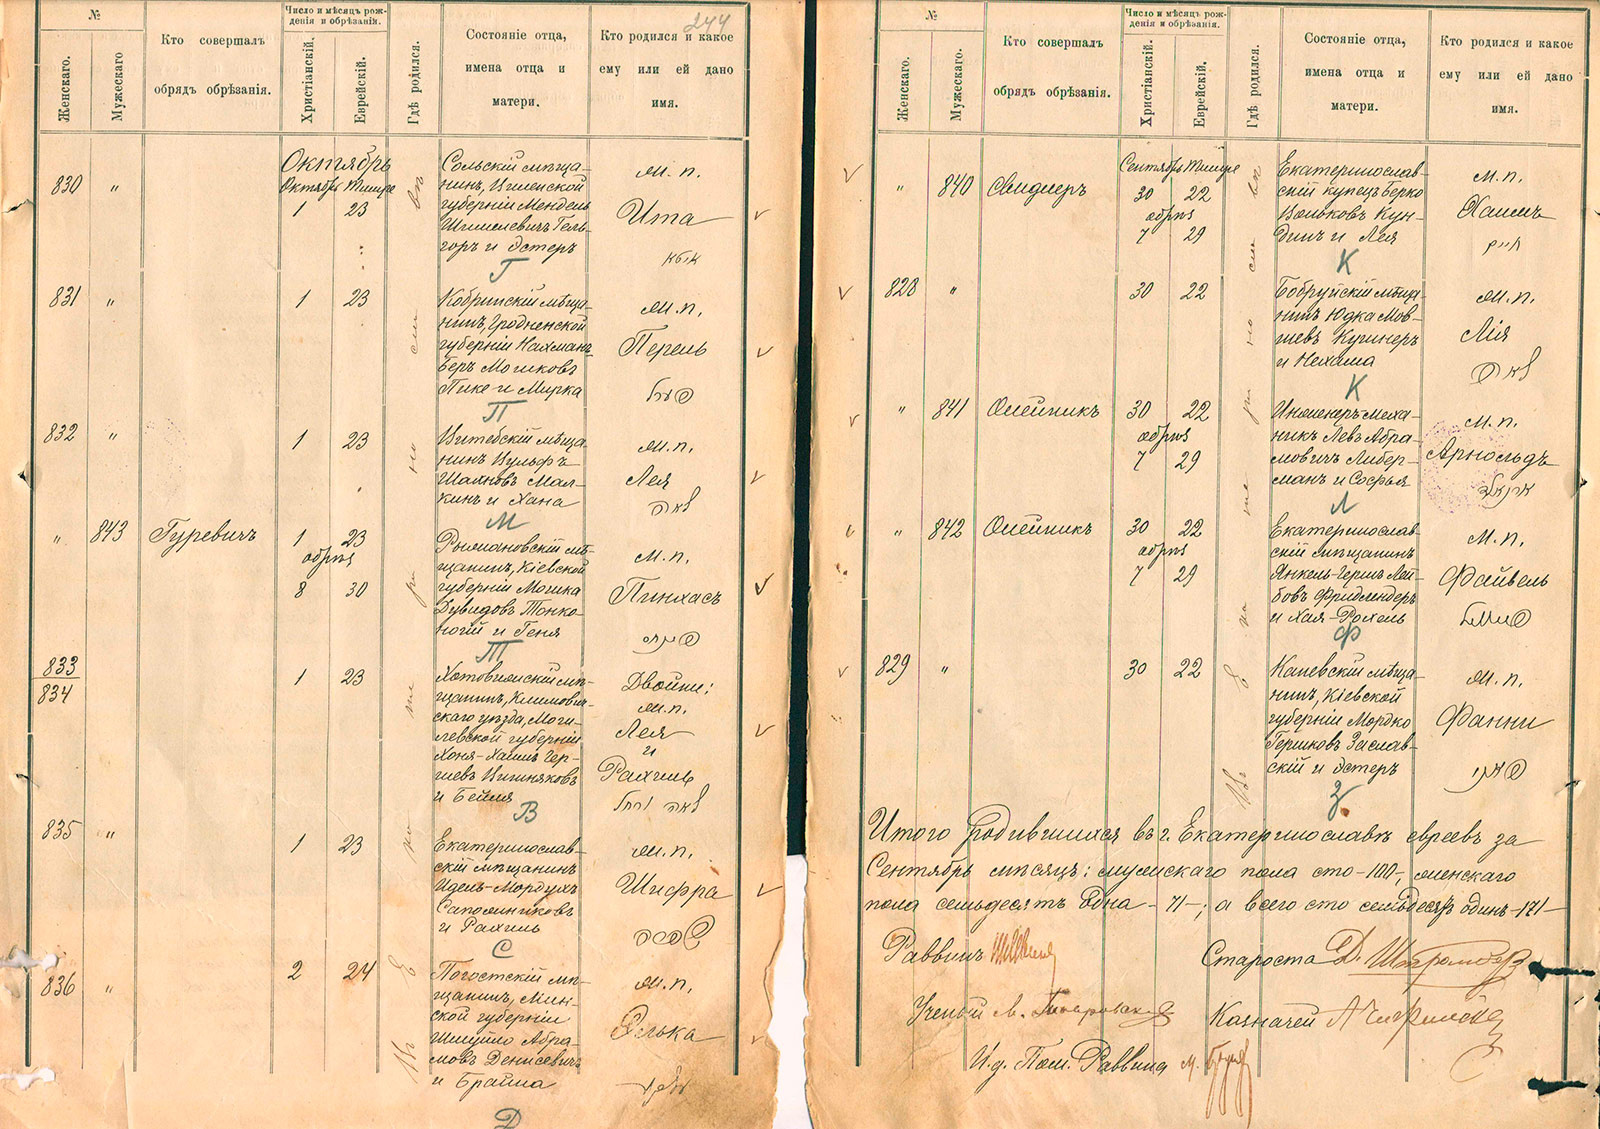 244
№
Женскаго.
Мужескаго
Кто совершалъ
обрядъ обрѣзанія.
Число и мѣсяцъ рож-
денія и обрѣзанія.
Христіанскій.
Еврейскій.
Гдѣ родился.
Состояніе отца,
имена отца и
матери.
Кто родился и какое
ему или ей дано
имя.
Октябрь
830
"
Октябрь Тишре
1 23
Сольскій мѣща-
нинъ, Виленской
губерніи Мендель
и Эстеръ
Г
м. п.
Ита
איטא
831
"
1 23
Кобринскій мѣща-
нинъ, Гродненской
губерніи Нахманъ-
Беръ Мошковъ
Пике и Мирка
П
м. п.
Перель
פערל
832
"
1 23
Витебскій мѣща-
нинъ Вульфъ
Шаиновъ Мал-
кинъ и Хана
М
м. п.
Лея
לאה
"
843
Гуревичъ
1 23
обрѣз
8 30
мѣ-
щанинъ, Кіевской
губерніи Мошка
Дувидовъ Тонко-
ногій и Геня
Т
м. п.
Пинхасъ
833
834
1 23
мѣ-
щанинъ, Климович-
скаго уѣзда, Моги-
левской губерніи
Хоня-Хаимъ Гер-
шевъ Вишняковъ
и Бейля
В
Двойни:
м. п.
Лея
и
Рахиль
לאה ורחל
835
"
1 23
Екатеринослав-
скій мѣщанинъ
Идель-Мордухъ
Сапожниковъ
и Рахиль
С
м. п.
Шифра
836
"
2 24
Погостскій мѣ-
щанинъ, Мин-
ской губерніи
Шмуйло Абра-
мовъ Денисевичъ
и Брайна
Д
м. п.
Элька
עלקא
№
Женскаго.
Мужескаго.
Кто совершалъ
обрядъ обрѣзанія.
Число и мѣсяцъ рож-
денія и обрѣзанія.
Христіанскій.
Еврейскій.
Гдѣ родился.
Состояніе отца,
имена отца и
матери.
Кто родился и какое
ему или ей дано
имя.
"
840
Свидлеръ
Сентябрь Тишре
30 22
обрѣз
7 29
Екатеринослав-
скій купецъ Берко
Вольковъ Кун-
динъ и Лея
К
м. п.
Хаимъ
חיים
828
"
30 22
Бобруйскій мѣща-
нинъ Юдка Мов-
шевъ Кушнеръ
и Нехама
К
м. п.
Лія
לאה
"
841
Олейникъ
30 22
обрѣз
7 29
Инженеръ Меха-
никъ Левъ Абра-
мовичъ Либер-
манъ и Софья
Л
м. п.
Арнольдъ
ארנאלד
"
842
Олейникъ
30 22
обрѣз
7 29
Екатеринослав-
скій мѣщанинъ
Янкель-Гершъ Лей-
бовъ Фридлендеръ
и Хая-Рохель
Ф
м. п.
Файвель
829
"
30 22
Каневскій мѣща-
нинъ, Кіевской
губерніи Мордко
Гершковъ Заслав-
скій и Эстеръ
З
м. п.
Фанни
פאני
Итого родившихся въ г. Екатеринославѣ евреевъ за
Сентябрь мѣсяцъ: мужскаго пола сто -100-, женскаго
пола семьдесятъ одна -71-; а всего сто семьдесятъ одинъ -171-
Раввинъ
Староста Д.
Ученый
Казначей
И. д. Пом. Раввина